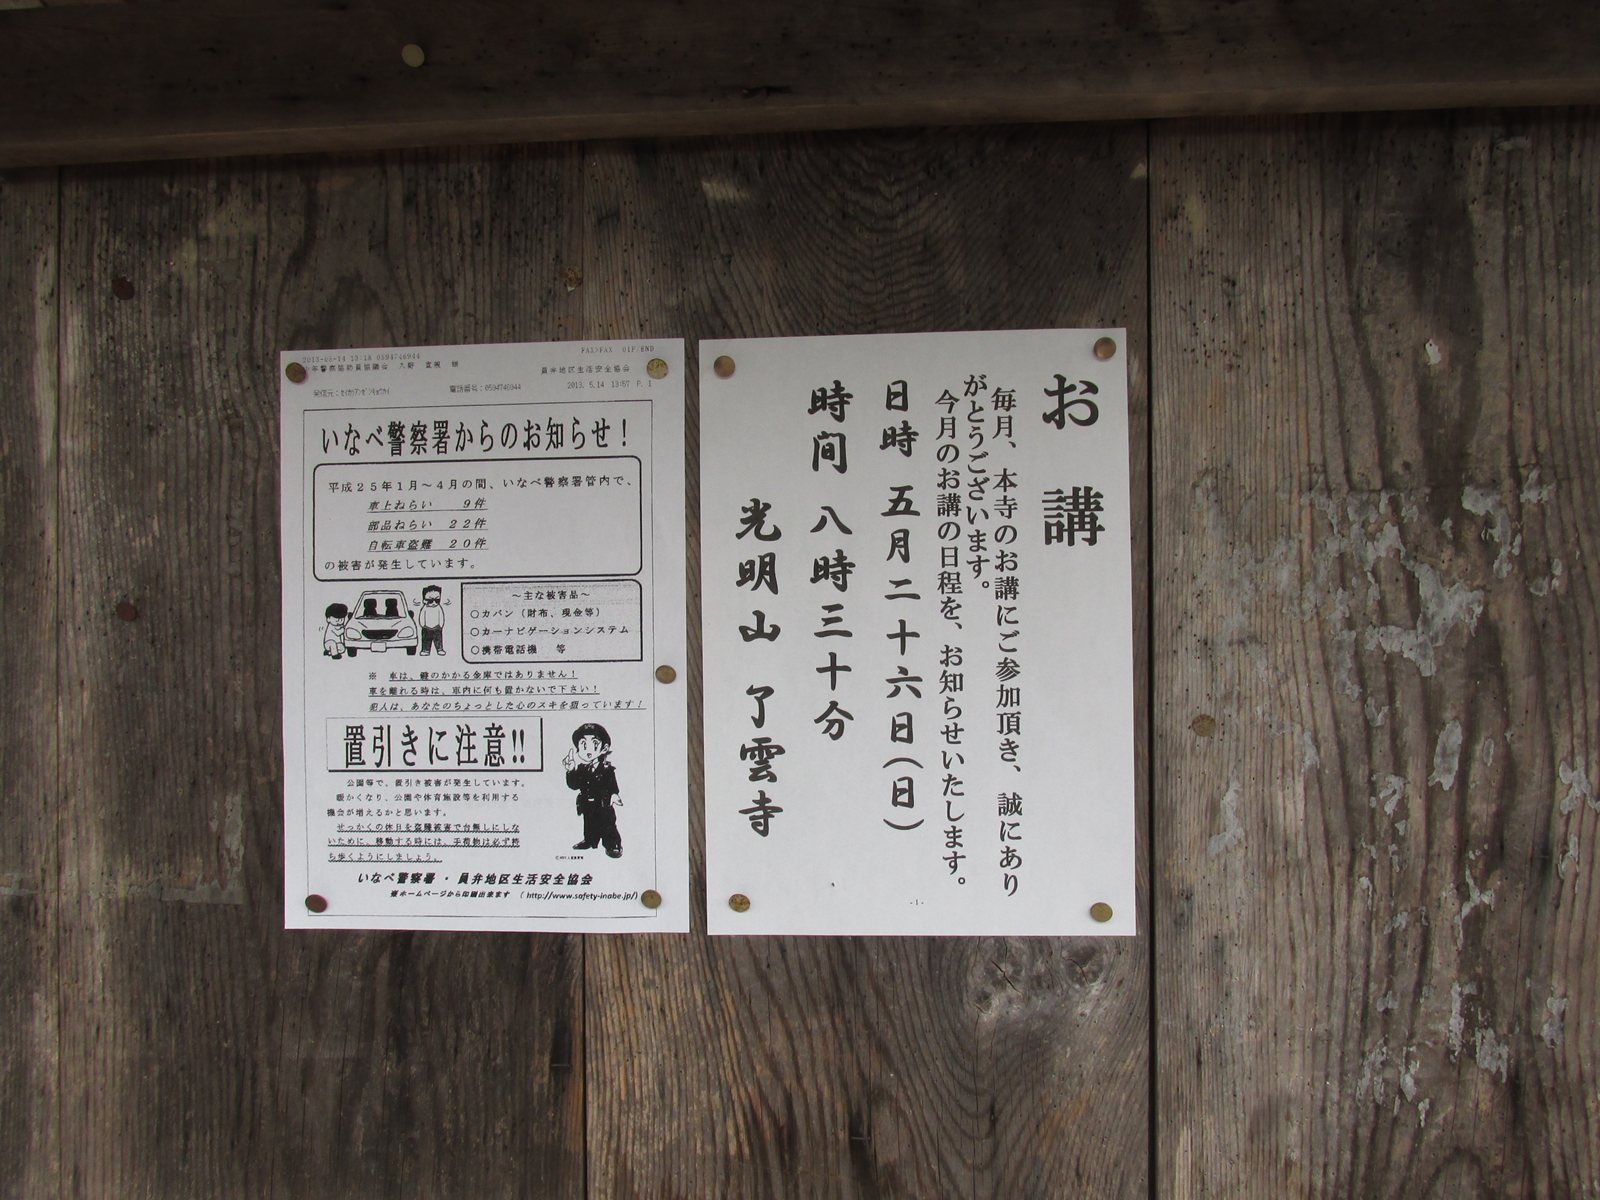 2013-05-14 13:18 0594746944
FAX>FAX
員弁地区生活安全協会
電話番号:0594746944
2013. 5.14 13:57 P. 1
いなべ警察署からのお知らせ!
平成25年1月~4月の間、いなべ警察署管内で、
車上ねらい 9件
部品ねらい 22件
自転車盗難 20件
の被害が発生しています。
~主な被害品~
○カバン(財布、現金等)
○カーナビゲーションシステム
○携帯電話機 等
※ 車は、鍵のかかる金庫ではありません!
車を離れる時は、車内に何も置かないで下さい!
犯人は、あなたのちょっとした心のスキを狙っています!
置引きに注意!!
公園等で、置引き被害が発生しています。
暖かくなり、公園や体育施設等を利用する
機会が増えるかと思います。
せっかくの休日を盗難被害で台無しにしな
いために、移動する時には、手荷物は必ず持
ち歩くようにしましょう。
いなべ警察署・員弁地区生活安全協会
※ホームページから印刷出来ます (http://www.safety-inabe.jp/)
お講
毎月、本寺のお講にご参加頂き、誠にあり
がとうございます。
今月のお講の日程を、お知らせいたします。
日時 五月二十六日(日)
時間 八時三十分
光明山 了雲寺
-1-